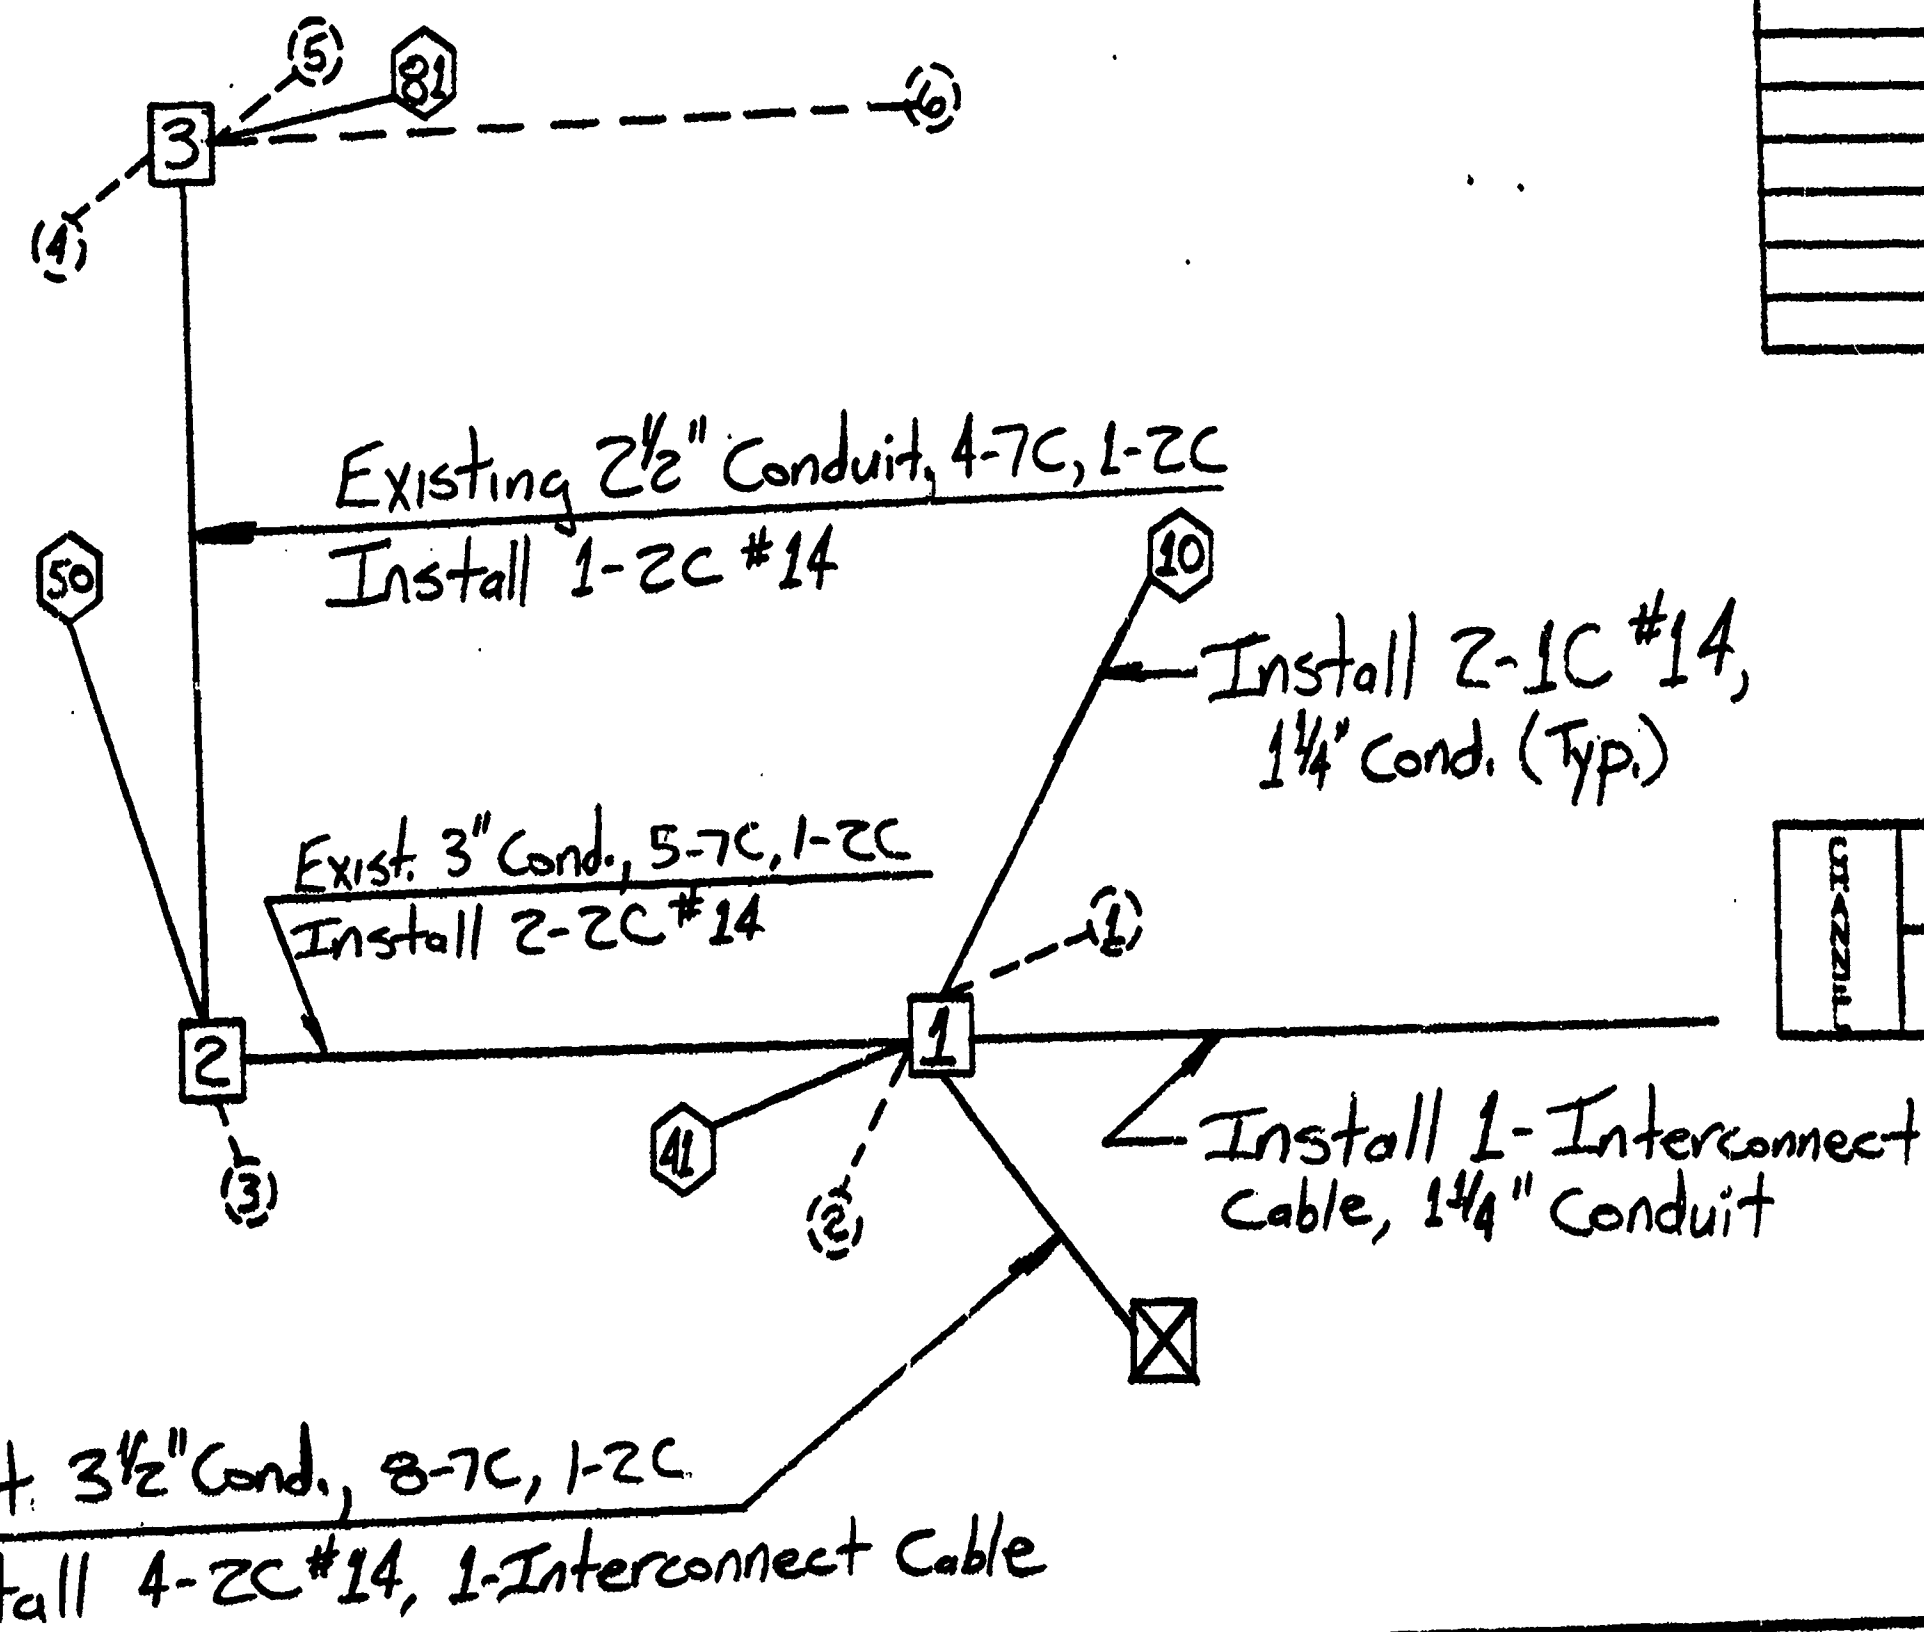 5
81
6
3
4
Existing 2½" Conduit, 4-7C, 1-2C
Install 1-2C #14
50
10
Install 2-1C #14,
1¼" Cond. (Typ.)
Exist. 3" Cond., 5-7C, 1-2C
Install 2-2C #14
1
CHANNEL
1
2
41
3
2
Install 1-Interconnect
Cable, 1¼" Conduit
3½" Cond., 8-7C, 1-2C
4-2C #14, 1-Interconnect Cable